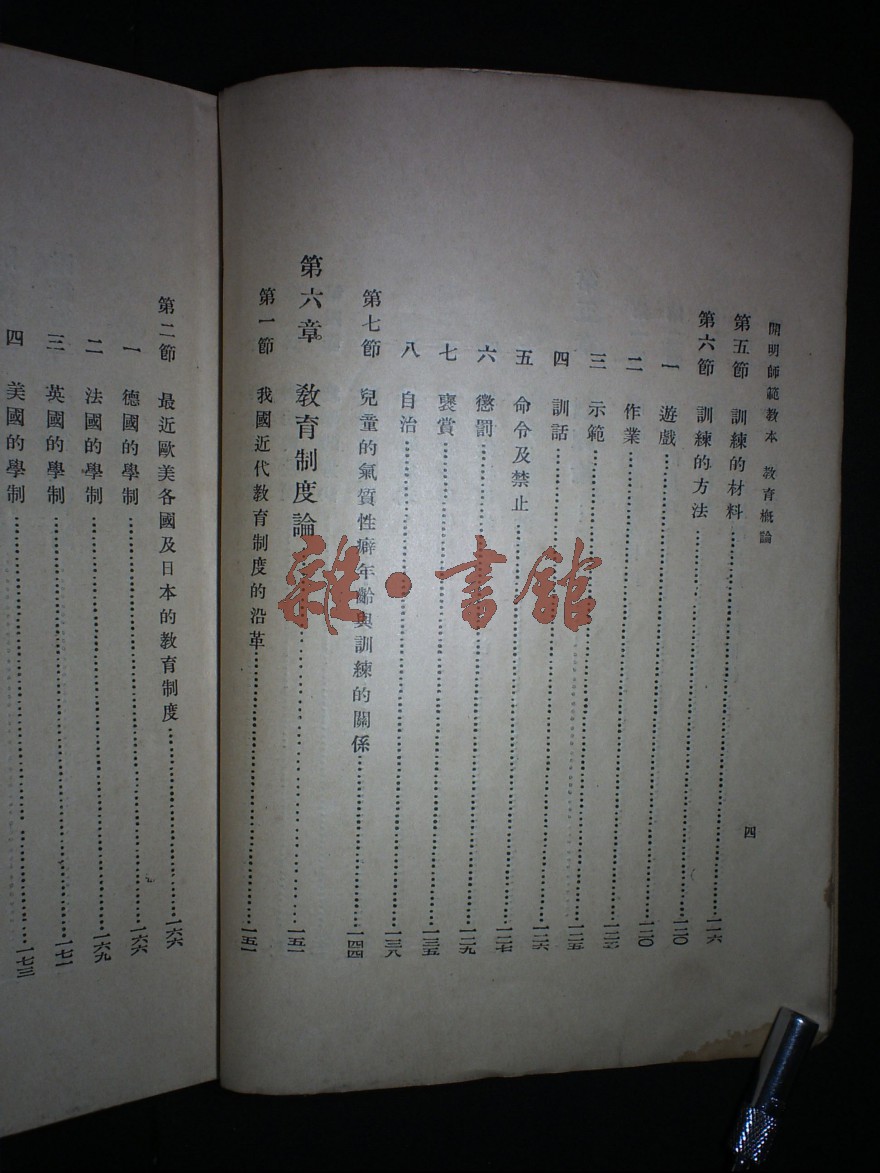 開明師範教本　教育概論
四
第五節　訓練的材料……一一六
第六節　訓練的方法……一二〇
一　遊戲……一二〇
二　作業……一二二
三　示範……一二五
四　訓話……一二六
五　命令及禁止……一二七
六　懲罰……一二九
七　褒賞……一三五
八　自治……一三八
第七節　兒童的氣質性癖年齡與訓練的關係……一四四
第六章　教育制度論……一五一
第一節　我國近代教育制度的沿革……一五一
第二節　最近歐美各國及日本的教育制度……一六六
一　德國的學制……一六六
二　法國的學制……一六九
三　英國的學制……一七一
四　美國的學制……一七三
雜·書館